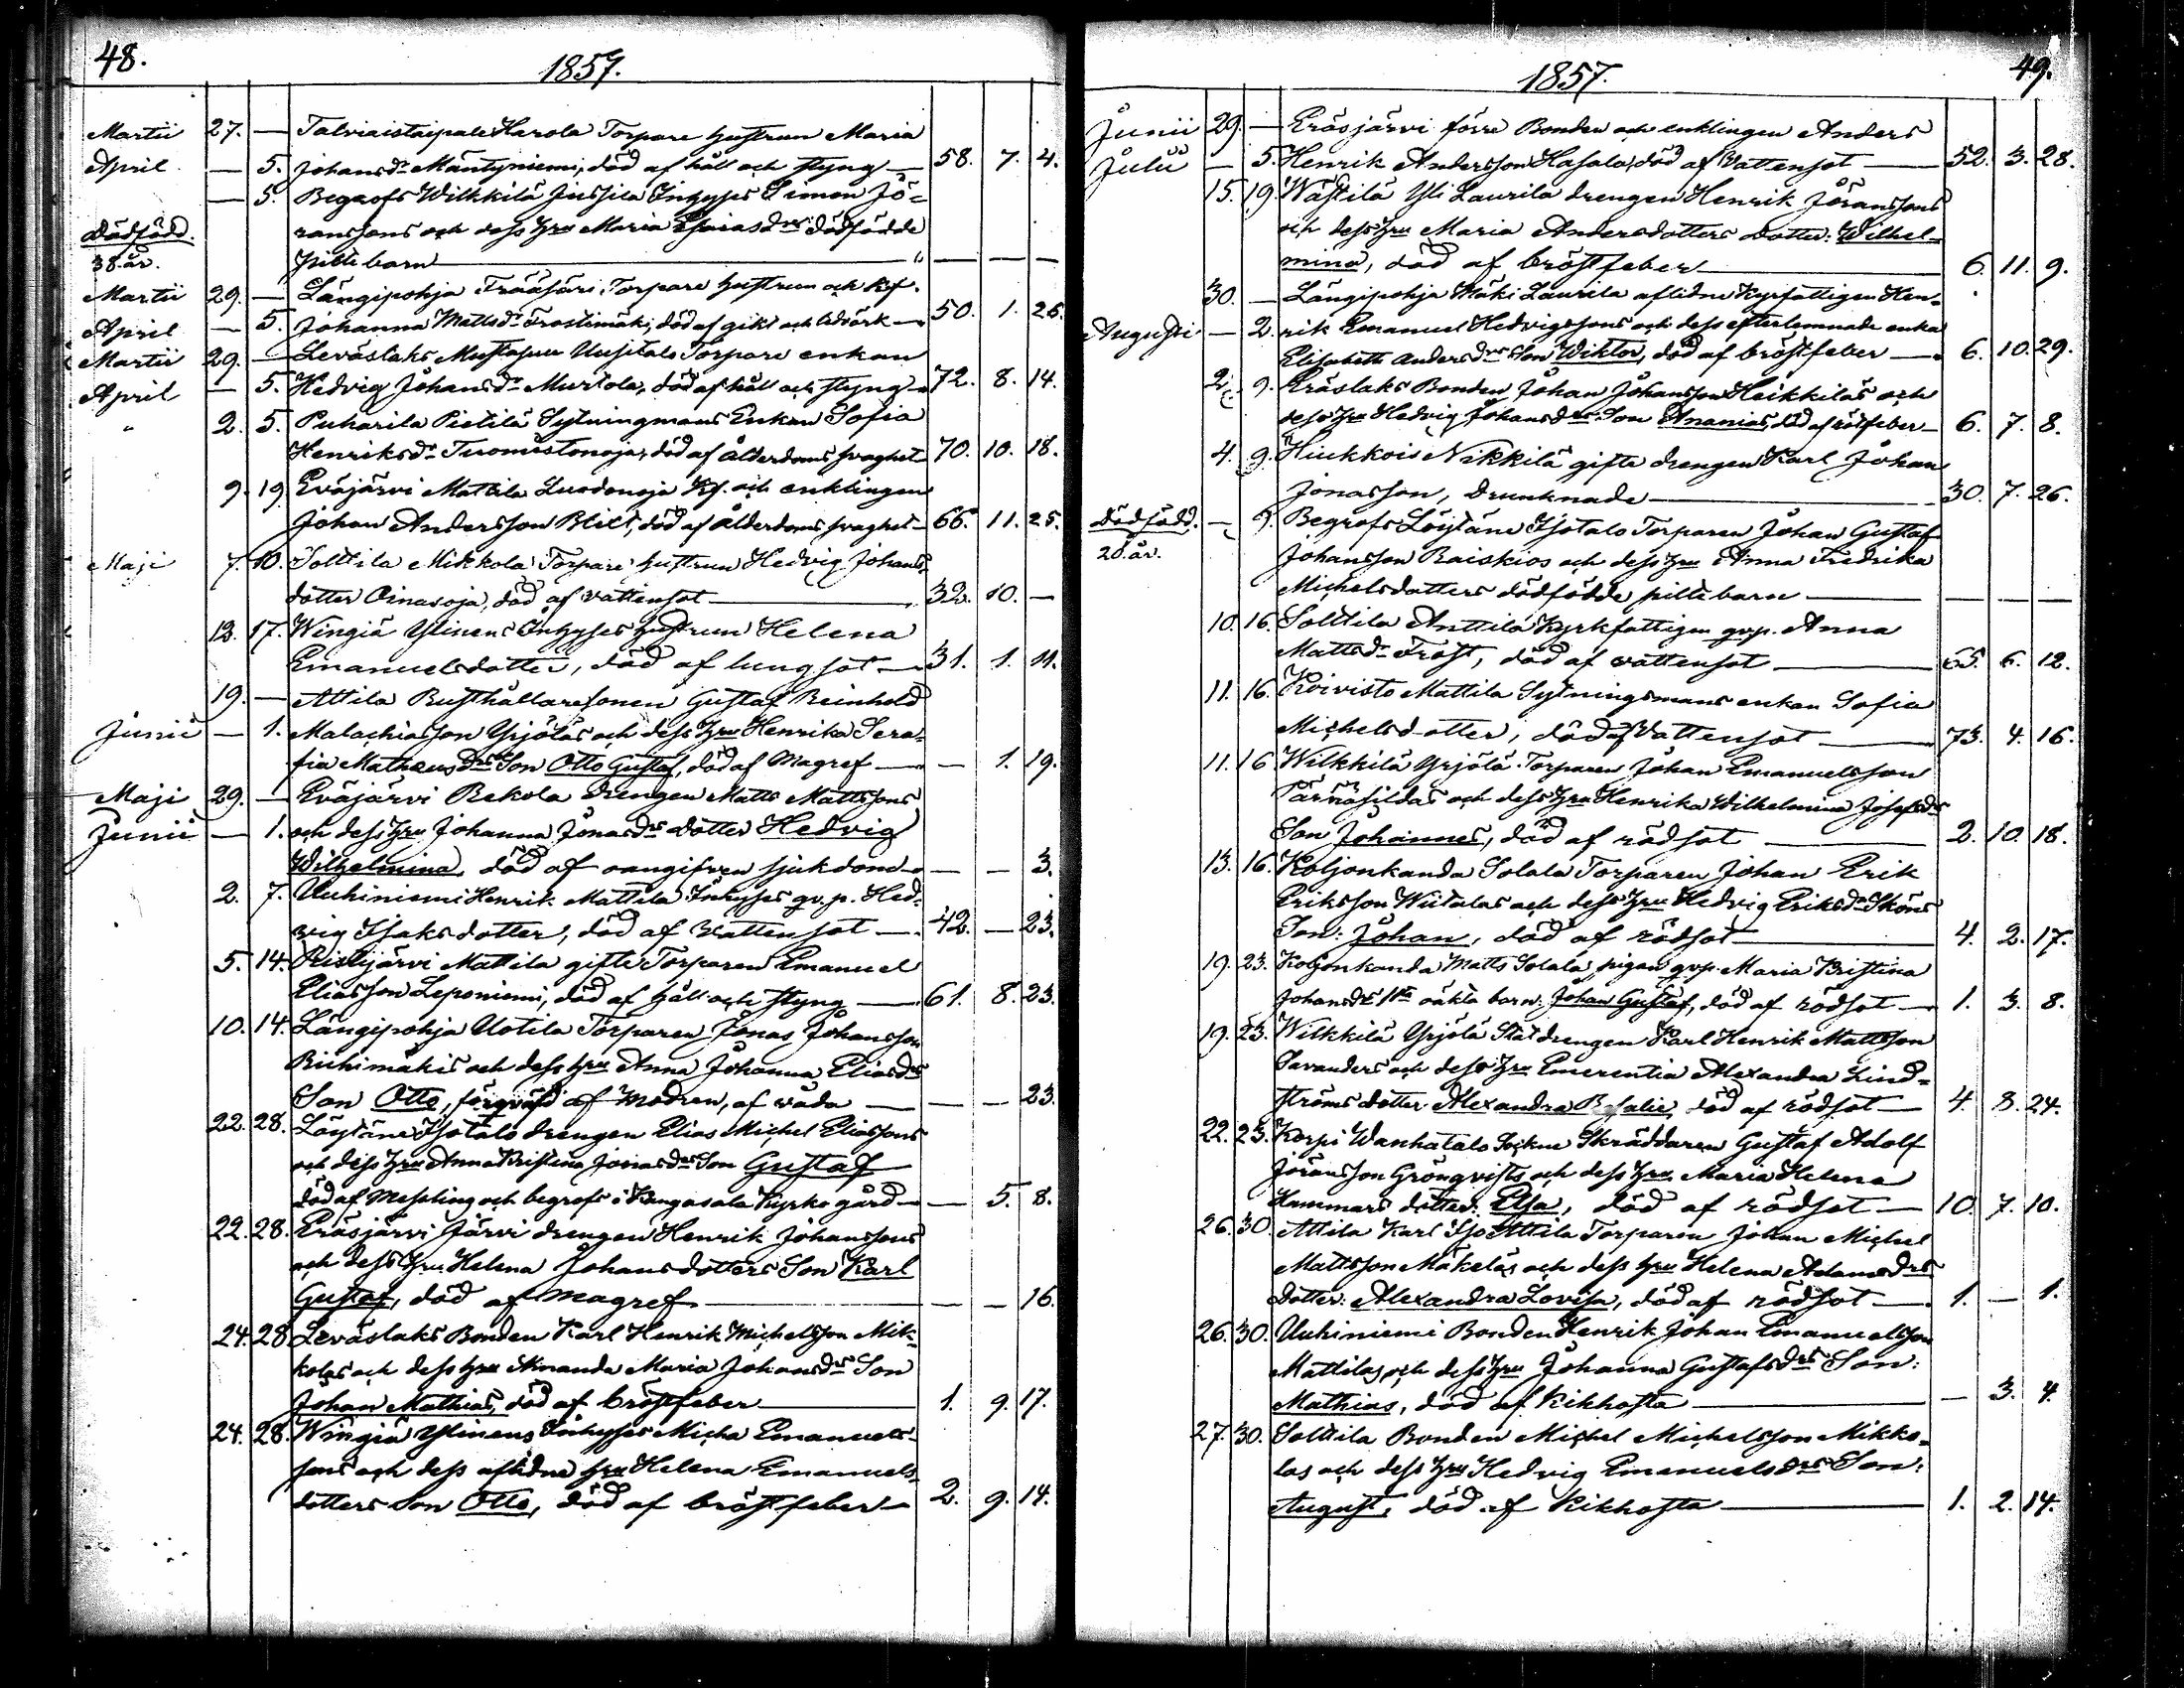 48.
1857.
Martii 27. — Talviaistaipale Harola Torpare hustrun Maria
April — 5. Johansdr Mäntyniemi, död af håll och styng — 58. 7. 4.
— 5. Begrofs Wilkkilä Jussila Inhyses Simon Jö-
Dödfödd. ranssons och dess hru Maria Esaiasdrs dödfödde
38 år. piltebarn — — —
Martii 29. — Längipohja Torpare hustrun och Kf.
April — 5. Johanna Mattsdr Frostimäki, död af gikt och — 50. 1. 26.
Martii 29. — Leväslaks Uusitalo Torpare enkan
April — 5. Hedvig Johansdr Murtola, död af håll och styng — 72. 8. 14.
" 2. 5. Puharila Pietilä Sytningmans Enkan Sofia
Henriksdr Tuomistonoja, död af ålderdoms svaghet 70. 10. 18.
9. 19. Eväjärvi Mattila Kf. och enklingen
Johan Andersson Blilt, död af ålderdoms svaghet — 66. 11. 25.
Maji 7. 10. Solttila Mikkola Torpare hustrun Hedvig Johans-
dotter Oinasoja, död af vattensot — 32. 10. —
13. 17. Wingiä Ylinens Inhyses hustrun Helena
Emanuelsdotter, död af lungsot — 31. 1. 11.
19. — Attila Rusthållaresonen Gustaf Reinhold
Junii — 1. Malachiasson Yrjölas och dess hru Henrika Sera-
fia Mathæusdrs Son Otto Gustaf, död af Magref — — 1. 19.
Maji 29. — Eväjärvi Rekola drengen Matts Mattssons
Junii — 1. och dess hru Johanna Jonasdrs dotter Hedvig
Wilhelmina, död af oangifven sjukdom — — — 3.
2. 7. Uuhiniemi Henrik Mattila Inhyses qv.p. Hed-
vig Isaksdotter, död af Vattensot — 42. — 23.
5. 14. Ristijärvi Mattila gifte Torparen Emanuel
Eliasson Leponiemi, död af håll och styng — 61. 8. 23.
10. 14. Längipohja Uotila Torparen Jonas Johansson
Riihimäkis och dess hru Anna Johanna Eliasdrs
Son Otto, förqväfd af Modren, af våda — — — 23.
22. 28. Löytäne Isotalo drengen Elias Michel Eliassons
och dess hru Anna Kristina Jonasdrs Son Gustaf
död af Messling och begrofs i Kangasala Kyrko gård — — 5. 8.
22. 28. Eräsjärvi Järvi drengen Henrik Johanssons
och dess hru Helena Johansdotters Son Karl
Gustaf, död af magref — — — 16.
24. 28. Leväslaks Bonden Karl Henrik Michelsson Mik-
kolas och dess hru Amanda Maria Johansdrs Son
Johan Mathias, död af bröstfeber — 1. 9. 17.
24. 28. Wingiä Ylinens Inhyses Micha Emanuels-
sons och dess aflidne hru Helena Emanuels-
dotters Son Otto, död af bröstfeber — 2. 9. 14.
1857.
49.
Junii 29. — Eräsjärvi förre Bonden och enklingen Anders
Julii — 5. Henrik Andersson Hasala, död af Vattensot — 52. 3. 28.
15. 19. Västilä Yli Laurila drengen Henrik Jöranssons
och dess hru Maria Andersdotters dotter: Wilhel-
mina, död af bröstfeber — 6. 11. 9.
30. — Längipohja Mäki Laurila aflidne Kyrkfattigen Hen-
Augusti — 2. rik Emanuel Hedvigssons och dess efterlemnade enka
Elisabeth Andersdrs Son Wiktor, död af bröstfeber — 6. 10. 29.
2. 9. Eräslaks Bonden Johan Johansson Heikkiläs och
dess hru Hedvig Johansdrs Son Ananias, död af rötfeber — 6. 7. 8.
4. 9. Hiukkois Nikkilä gifte drengen Karl Johan
Jonasson, Drunknade — 30. 7. 26.
Dödfödd. — 9. Begrofs Löytäne Isotalo Torparen Johan Gustaf
20 år. Johansson Raiskios och dess hru Anna Fredrika
Michelsdotters dödfödde piltebarn — — —
10. 16. Solttila Anttila Kyrkfattigen qv.p. Anna
Mattsdr Frost, död af vattensot — 65. 6. 12.
11. 16. Koivisto Mattila Sytningsmans enkan Sofia
Michelsdotter, död af Vattensot — 73. 4. 16.
11. 16. Wilkkilä Yrjölä Torparen Johan Emanuelsson
Pärnäsildas och dess hru Henrika Wilhelmina Josefsdrs
Son Johannes, död af rödsot — 2. 10. 18.
13. 16. Koljonkanda Solala Torparen Johan Erik
Eriksson Wiitalas och dess hru Hedvig Eriksdr Sköns
Son: Johan, död af rödsot — 4. 2. 17.
19. 23. Koljonkanda Matts Solala pigan qvp. Maria Kristina
Johansdrs 1sta oäkta barn: Johan Gustaf, död af rödsot — 1. 3. 8.
19. 23. Wilkkilä Yrjölä Statdrengen Karl Henrik Mattsson
Savanders och dess hru Emerentia Alexandra Lind-
ströms dotter Alexandra Rosalie, död af rödsot — 4. 8. 24.
22. 23. Korpi Wanhatalo Sockne Skräddaren Gustaf Adolf
Jöransson Grönqvists och dess hru Maria Helena
Hammars dotter: Elsa, död af rödsot — 10. 7. 10.
26. 30. Attila Karl Iso Attila Torparen Johan Michel
Mattsson Mäkeläs och dess hru Helena Adamsdrs
dotter: Alexandra Lovisa, död af rödsot — 1. — 1.
26. 30. Uuhiniemi Bonden Henrik Johan Emanuelsson
Mattilas och dess hru Johanna Gustafsdrs Son:
Mathias, död af Kikhosta — — 3. 4.
27. 30. Solttila Bonden Michel Michelsson Mikko-
las och dess hru Hedvig Emanuelsdrs Son:
August, död af Kikhosta — 1. 2. 14.